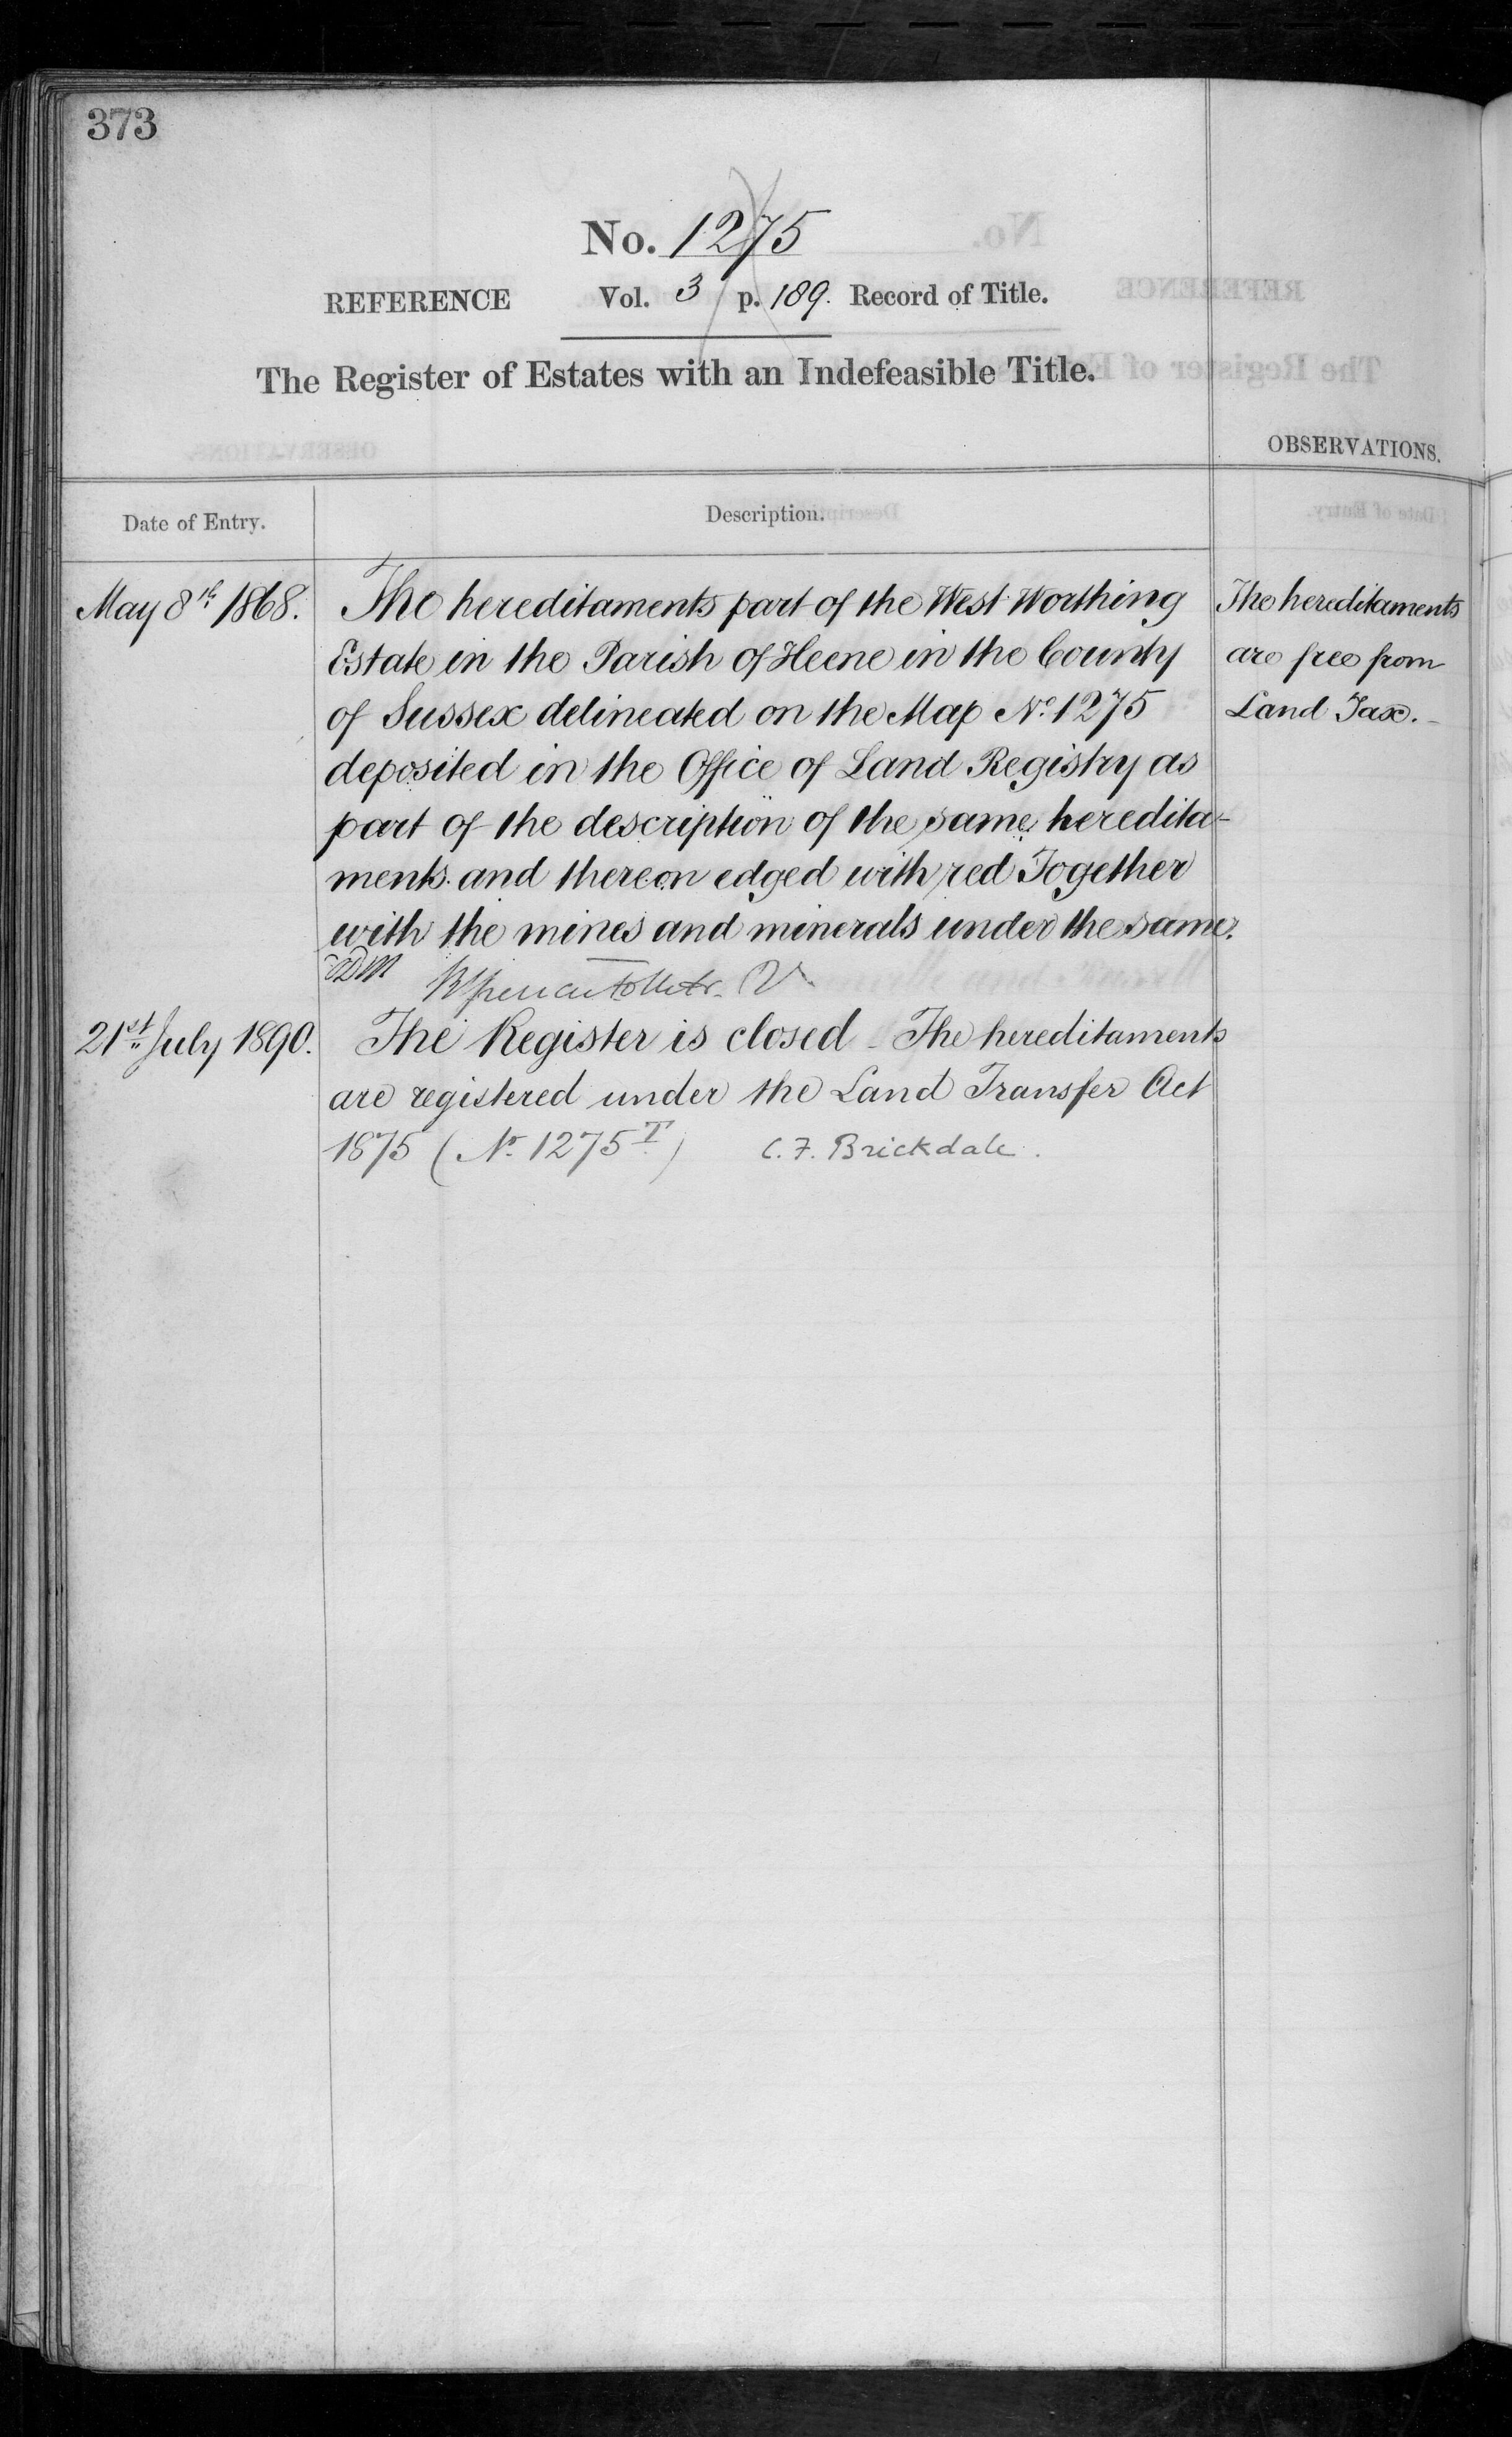 373
No. 1275
REFERENCE Vol. 3 p. 189. Record of Title.
The Register of Estates with an Indefeasible Title.
OBSERVATIONS.
Date of Entry.
Description.
May 8th 1868.
The hereditaments part of the West Worthing
Estate in the Parish of Heene in the County
of Sussex delineated on the Map No. 1275
deposited in the Office of Land Registry as
part of the description of the same heredita-
ments and thereon edged with red Together
with the mines and minerals under the same.
The hereditaments
are free from
Land Tax.
21st July 1890.
The Register is closed - The hereditaments
are registered under the Land Transfer Act
1875 (No. 1275T) C. F. Brickdale.